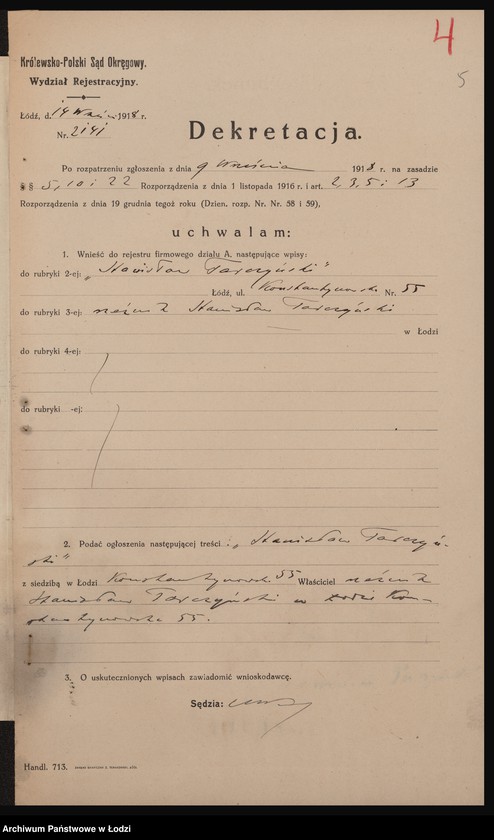 4
5
Królewsko-Polski Sąd Okręgowy.
Wydział Rejestracyjny.
Łódź, d. 14 Wrześn 1918 r.
Nr. 2141
Dekretacja.
Po rozpatrzeniu zgłoszenia z dnia 9 Września 1918 r. na zasadzie
§ § 5, 10 i 22 Rozporządzenia z dnia 1 listopada 1916 r. i art. 2, 3, 5 i 13
Rozporządzenia z dnia 19 grudnia tegoż roku (Dzien. rozp. Nr. Nr. 58 i 59),
uchwalam:
1. Wnieść do rejestru firmowego działu A. następujące wpisy:
do rubryki 2-ej: „Stanisław Tarczyński"
Łódź, ul. Konstantynowska Nr. 55
do rubryki 3-ej: rzeźnik Stanisław Tarczyński
w Łodzi
do rubryki 4-ej:
do rubryki -ej:
2. Podać ogłoszenia następującej treści: „Stanisław Tarczyń-
ski"
z siedzibą w Łodzi Konstantynowska 55 Właściciel rzeźnik
Stanisław Tarczyński w Łodzi Kon-
stantynowska 55.
3. O uskutecznionych wpisach zawiadomić wnioskodawcę.
Sędzia:
Handl. 713.
Archiwum Państwowe w Łodzi